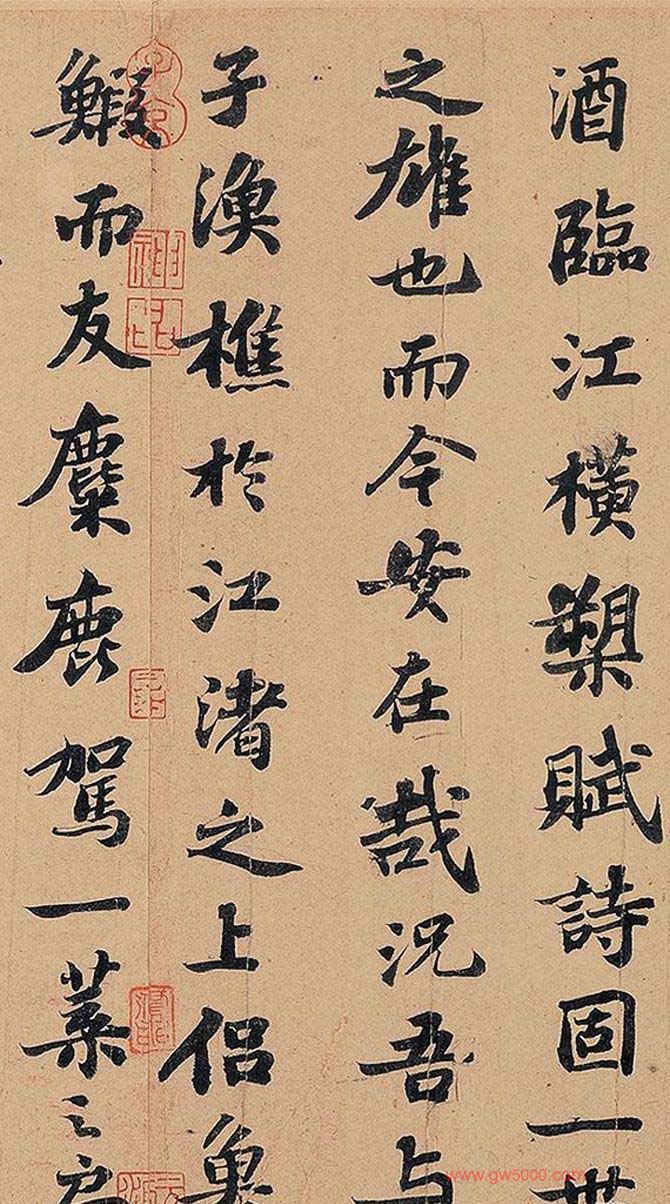 酒臨江橫槊賦詩固一世
之雄也而今安在哉況吾與
子漁樵於江渚之上侶魚
鰕而友麋鹿駕一葉之扁
www.gw5000.com